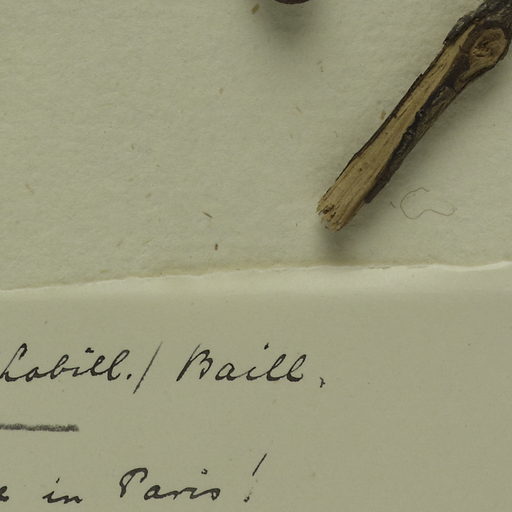 Labill./ Baill.
in Paris!